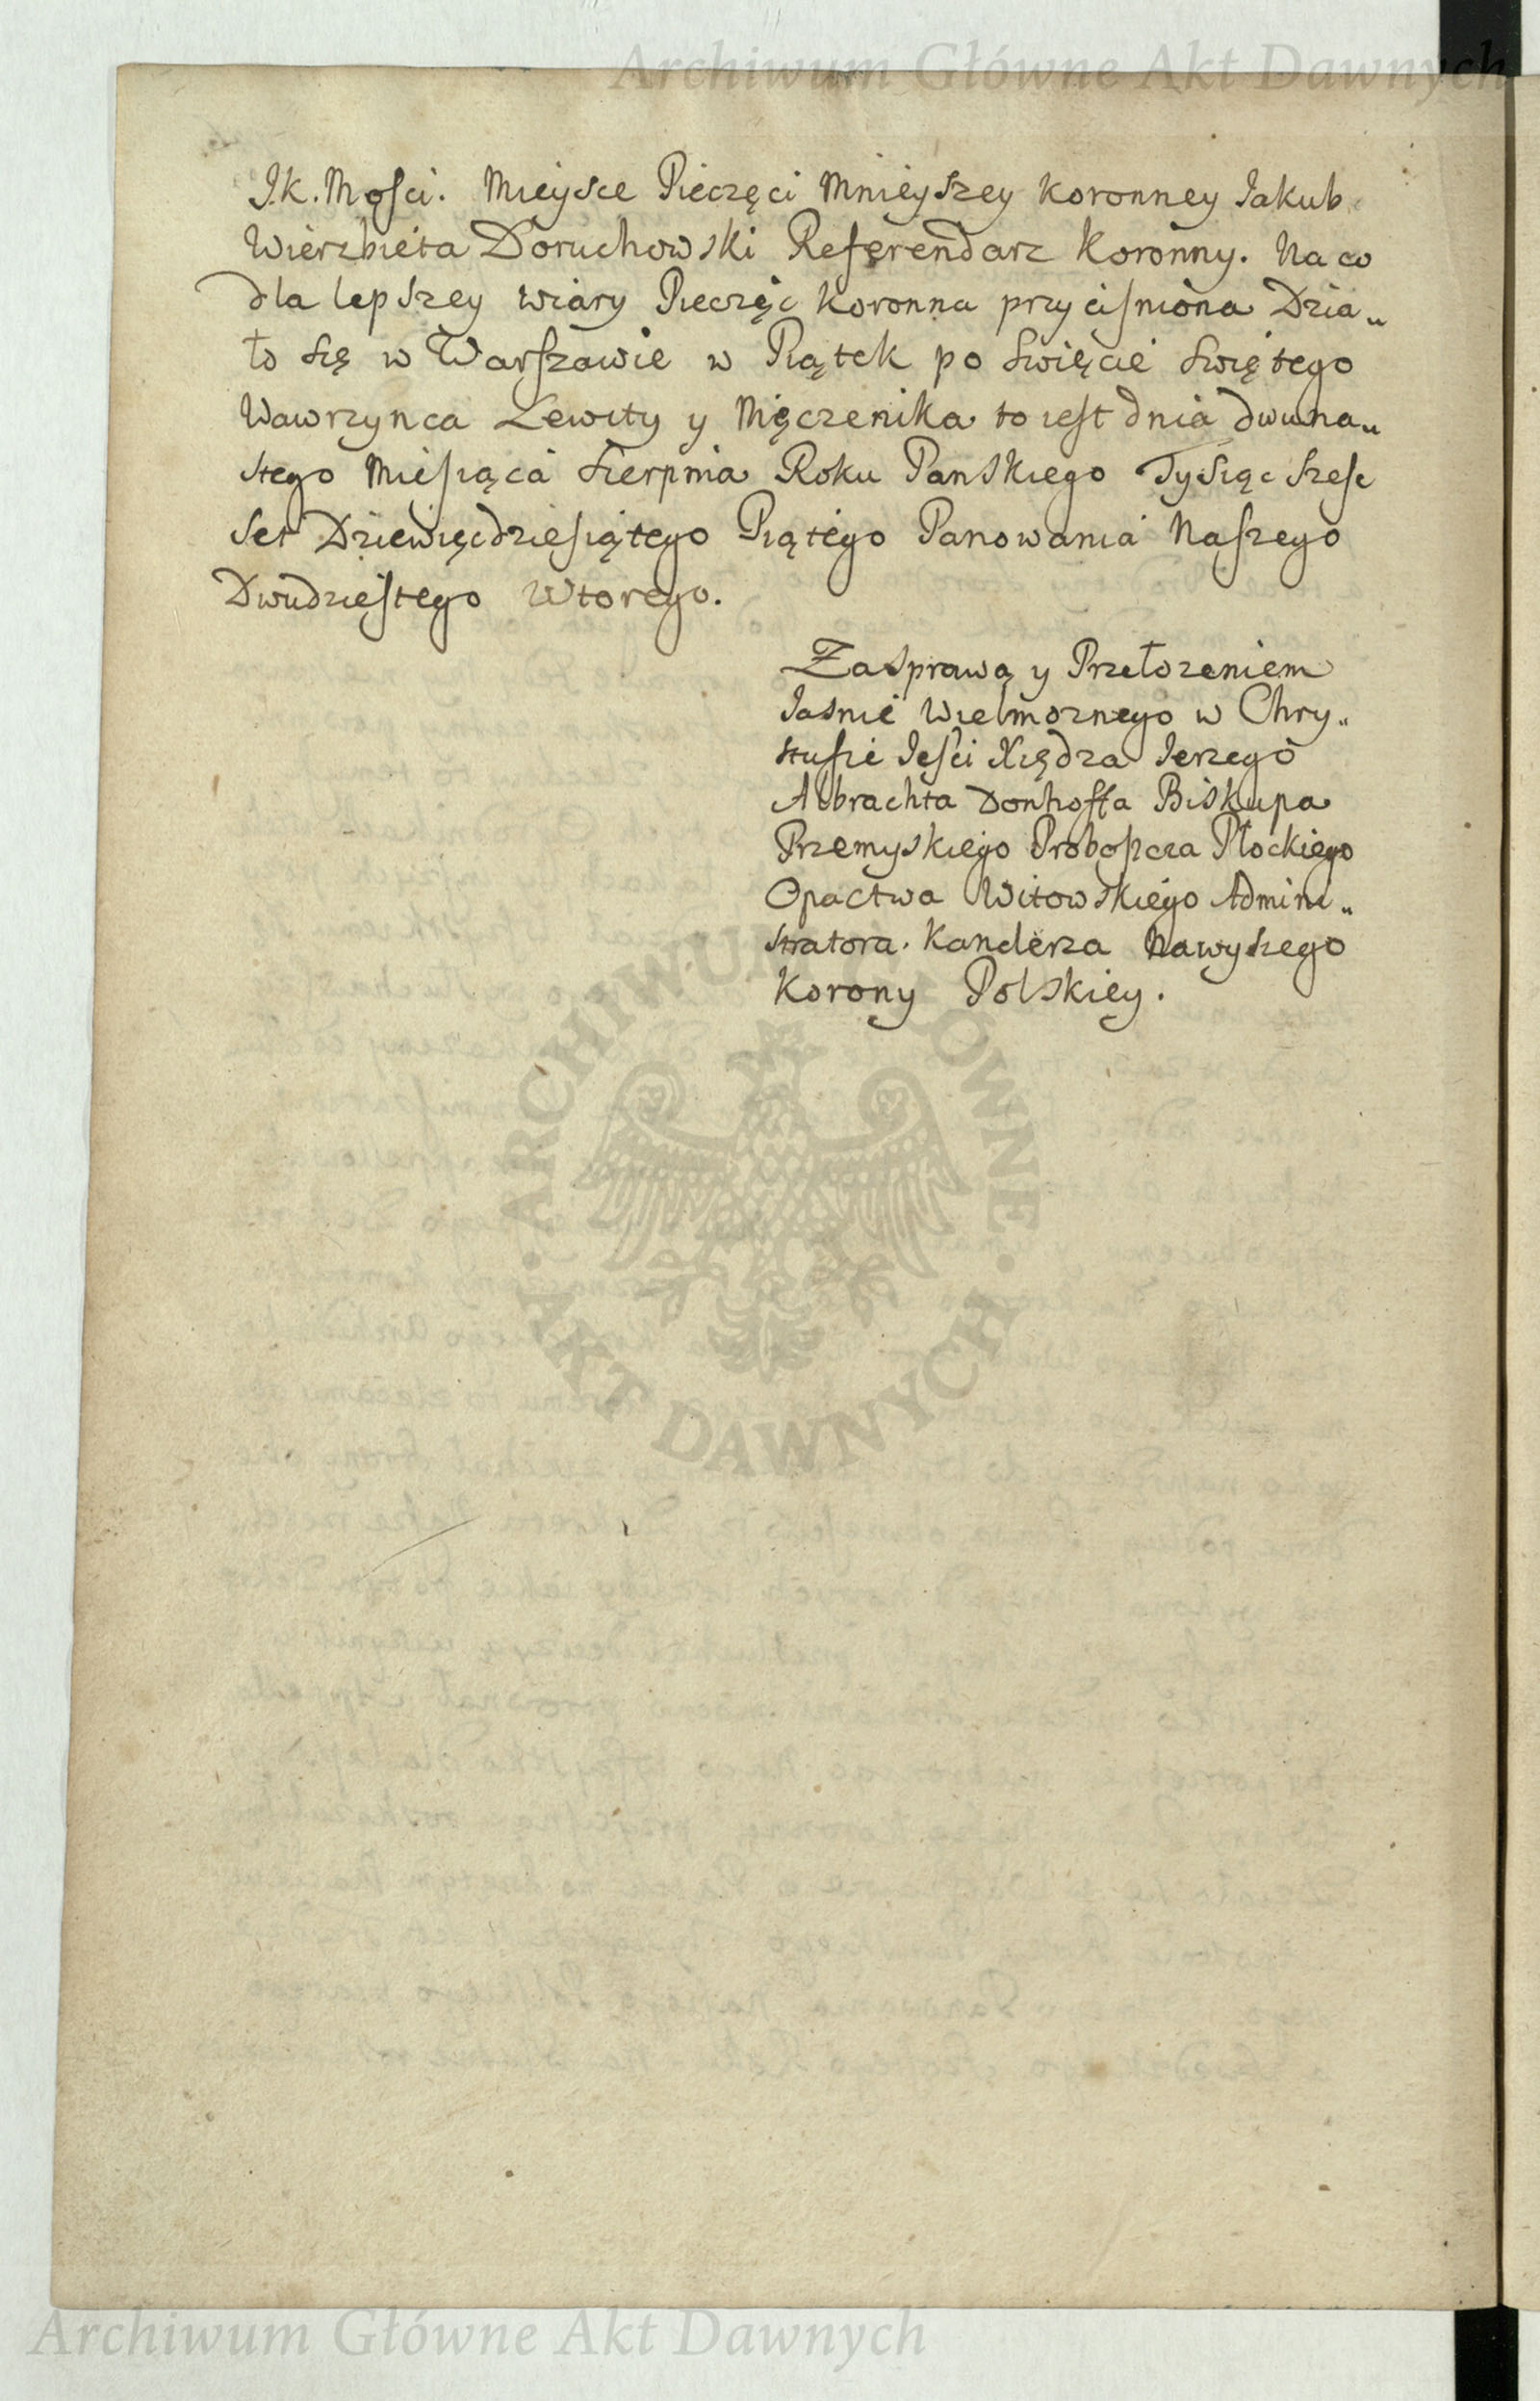 Archiwum Główne Akt Dawnych
J.K. Mości. Mieysce Pieczęci Mnieyszey Koronney Jakub
Wierzbieta Doruchowski Referendarz Koronny. Na co
dla lepszey wiary Pieczęc Koronna przycisniona Dzia„
ło się w Warszawie w Piątek po swięcie swiętego
Wawrzynca Lewity y Męczenika to iest dnia dwuna„
stego Miesiąca Sierpnia Roku Panskiego Tysiąc szesc
set Dziewięcdziesiątego Piątego Panowania Naszego
Dwudziestego Wtorego.
Za sprawą y Przełozeniem
Jasnie Wielmoznego w Chry„
stusie Jeści Xiędza Jerzego
Albrachta Donhoffa Biskupa
Przemyskiego Proboszcza Płockiego
Opactwa Witowskiego Admini„
stratora. Kanclerza Nawyszego
Korony Polskiey.
ARCHIWUM GŁÓWNE
AKT DAWNYCH
Archiwum Główne Akt Dawnych